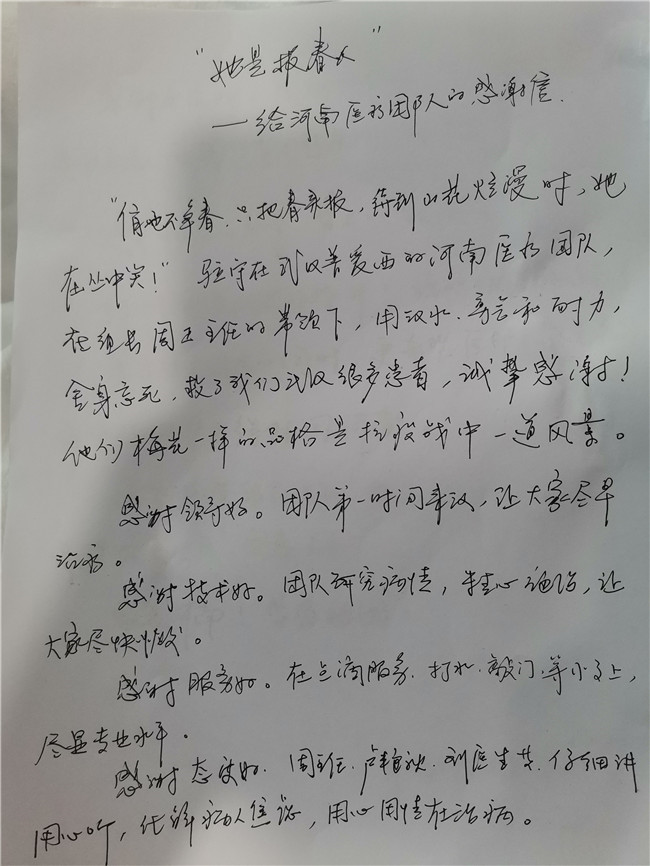 “她是报春人”
——给河南医疗团队的感谢信.
“俏也不争春.只把春来报,待到山花烂漫时,她
在丛中笑!”驻守在武汉普爱西的河南医疗团队,
在组长周正主任的带领下,用汗水.奉和耐力,
舍身忘死,救了我们武汉很多患者,诚挚感谢!
他们梅花一样的品格是抗疫战中一道风景。
感谢领导好。团队第一时间来汉,让大家尽早
治病。
感谢技术好。团队研究病情,精心施治,让
大家尽快恢复。
感谢服务好。在点滴服务.打水.敲门等小事上,
尽显专业水平。
感谢态度好.周主任.卢.刘医生等.仔细讲
用心听,化解病人焦虑,用心用情在治病。